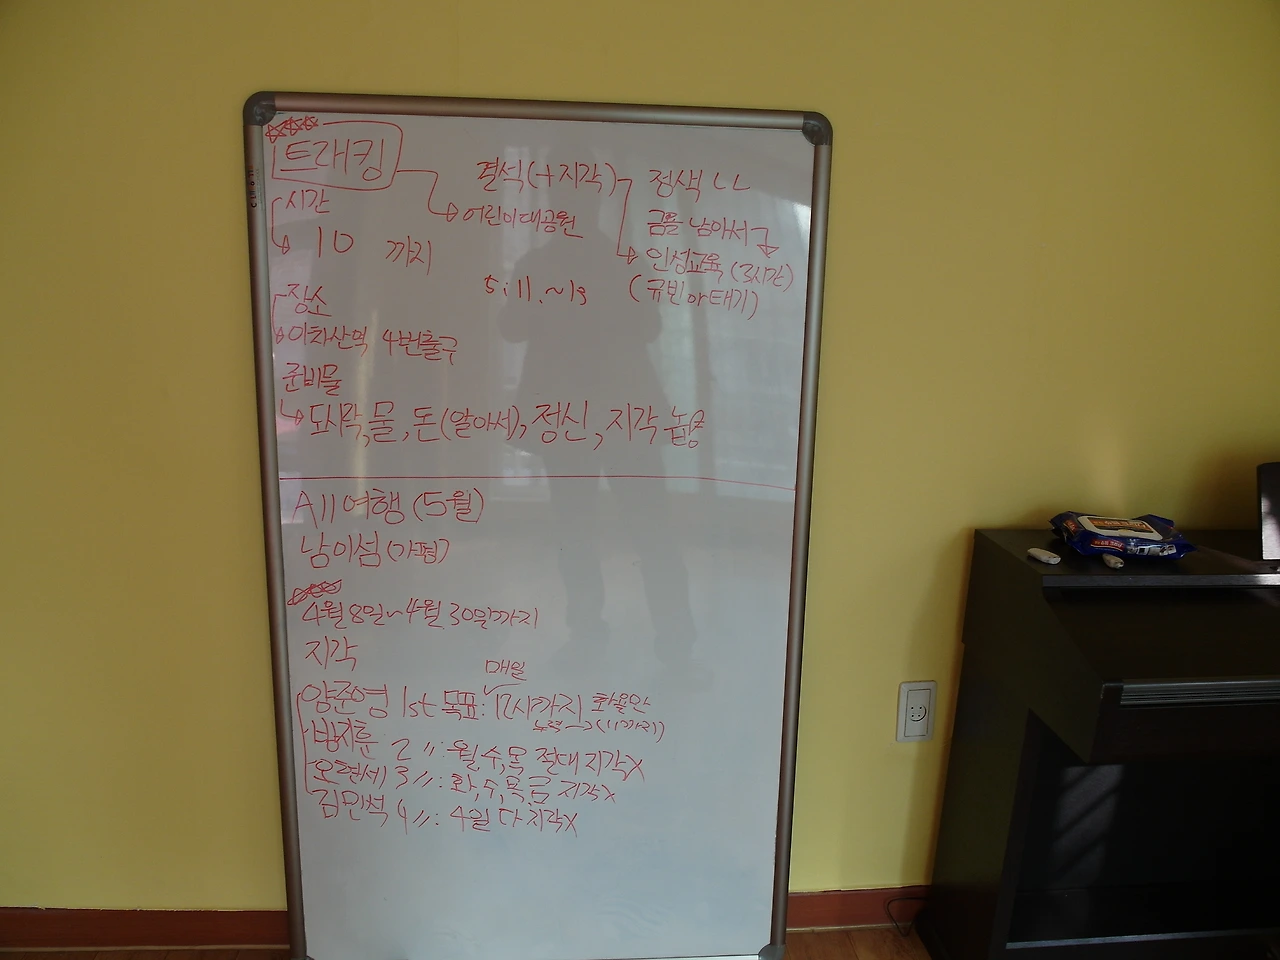 트래킹
시간
10 까지
장소
아차산역 4번출구
준비물
도시락, 물, 돈(알아서), 정신, 지각 놉
어린이대공원
결석(+지각)
5:11.~19
정색 ㄴㄴ
금욜 남아서
인성교육 (3시간)
(규빈아 태기)
All 여행 (5월)
남이섬 (가평)
4월8일~4월 30일까지
지각
매일
양준영 1st 목표: 12시까지
(11까지)
방지훈 2〃: 월,수,목 절대 지각X
오현세 3〃: 화,수,목,금 지각X
김민석 4〃: 4일 다 지각X